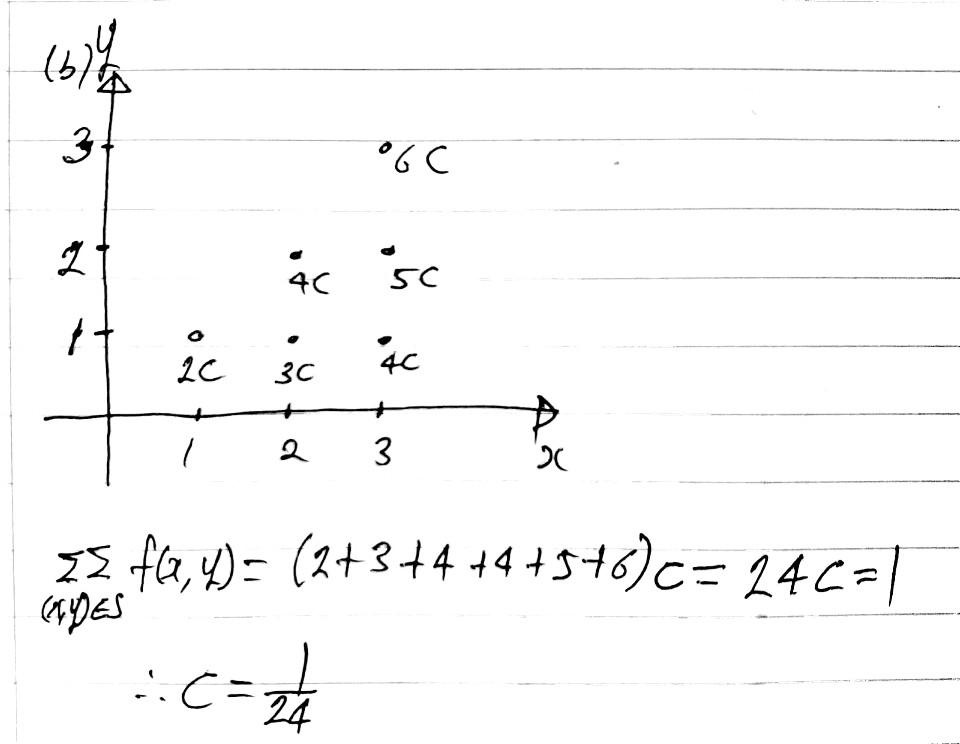 (b) y
3
6C
2
4C 5C
1
2C 3C 4C
1 2 3 x
ΣΣ f(x,y) = (2+3+4+4+5+6)C = 24C = 1
(x,y)∈S
∴ C = 1/24